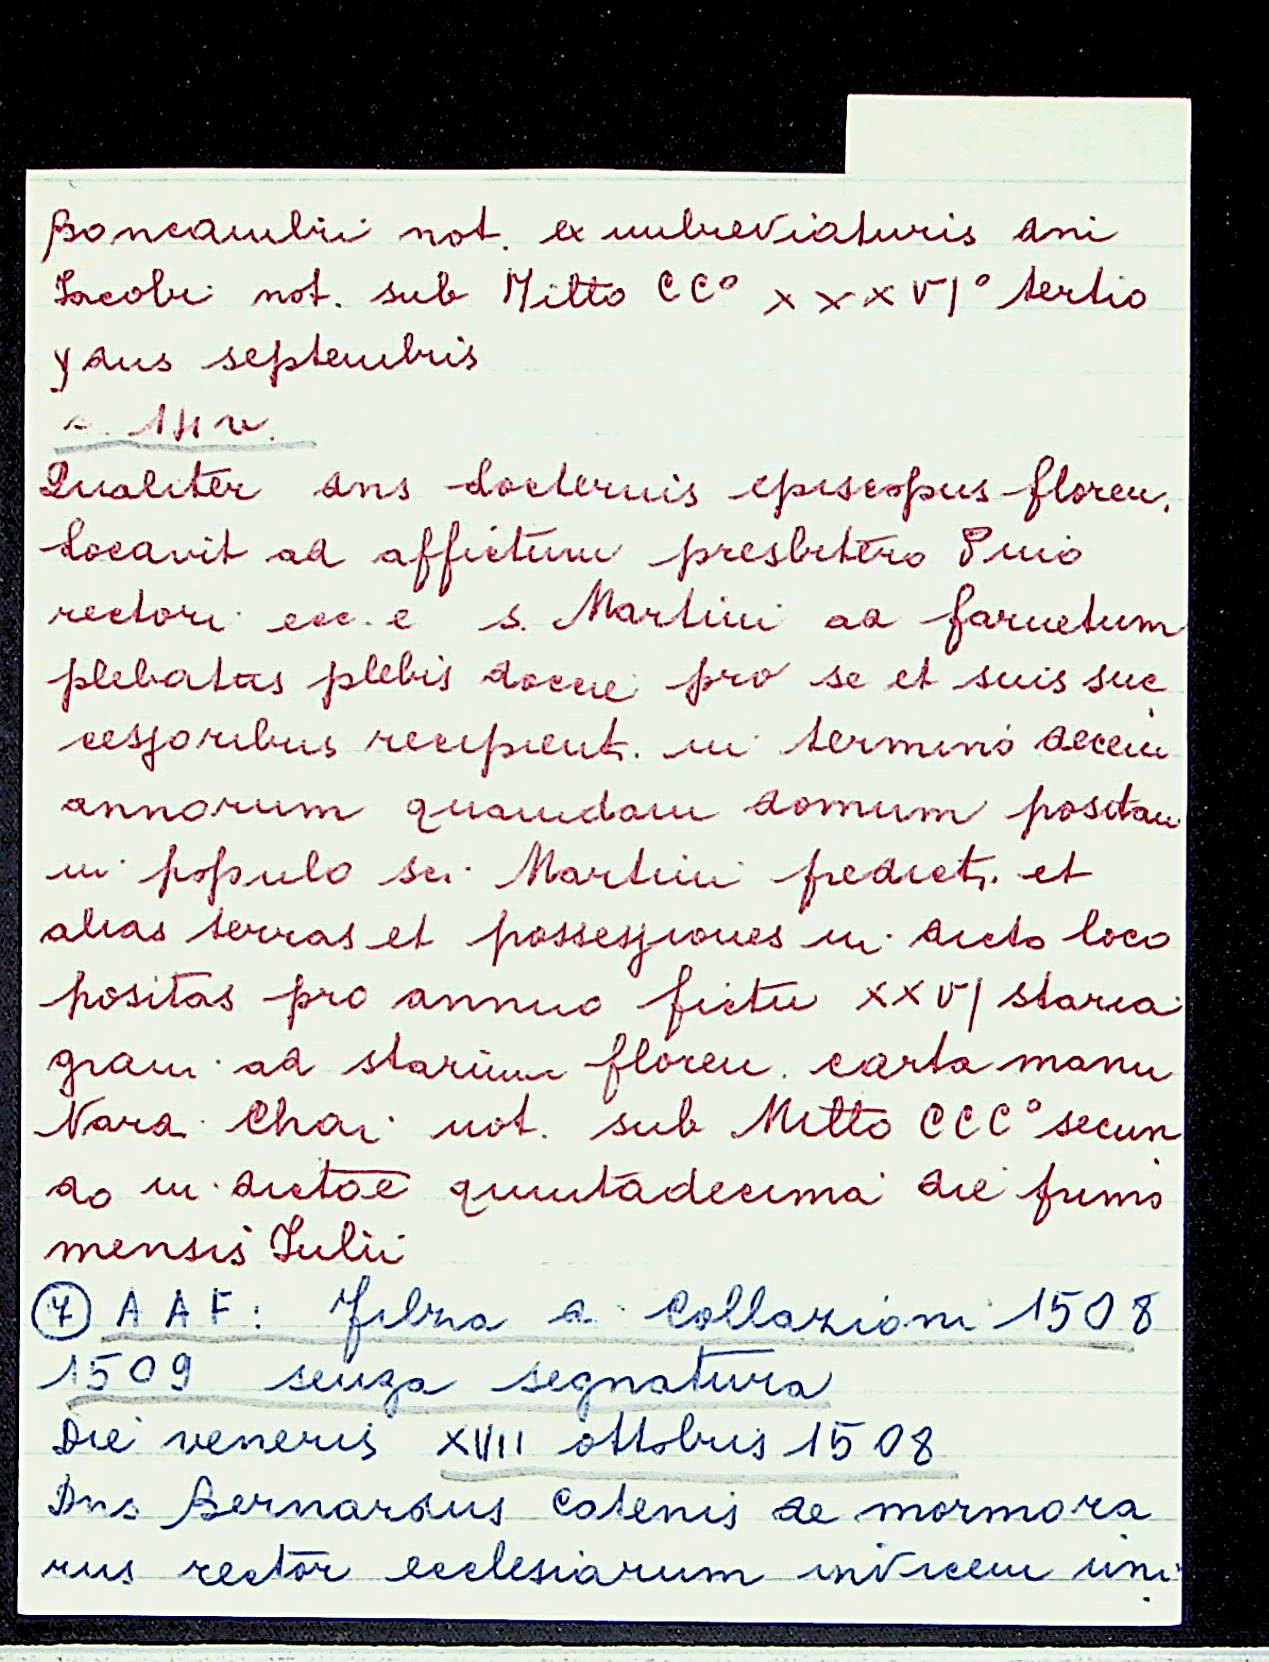 Boncambii not. ex imbreviaturis dni
Jacobi not. sub Millo CC° XXXVI° tertio
ydus septembris
c. 14 v.
Qualiter dns Locterius episcopus floren.
locavit ad affictum presbitero Puio
rectori ecc. e s. Martini ad farnetum
plebatus plebis doccie pro se et suis suc
cessoribus recipient. in termino decem
annorum quamdam domum positam
in populo sci. Martini predict. et
alias terras et possessiones in dicto loco
positas pro annuo fictu XXVI staria
gran. ad starium floren. carta manu
Nard. Chai. not. sub Millo CCC° secun
do in dictoe quintadecima die primo
mensis Julii
7 A A F: Filza di Collazioni 1508
1509 senza segnatura
Die veneris XIIII ottobris 1508
Dns Bernardus Catenis de mormora
rus rector ecclesiarum invicem uni